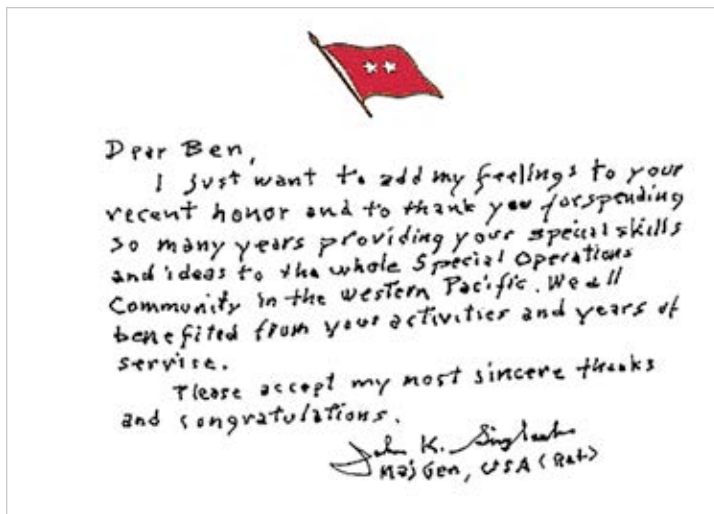 Dear Ben,
I just want to add my feelings to your
recent honor and to thank you for spending
so many years providing your special skills
and ideas to the whole Special Operations
Community in the Western Pacific. We all
benefited from your activities and years of
service.
Please accept my most sincere thanks
and congratulations.
John K. Singlaub
MajGen, USA (Ret)